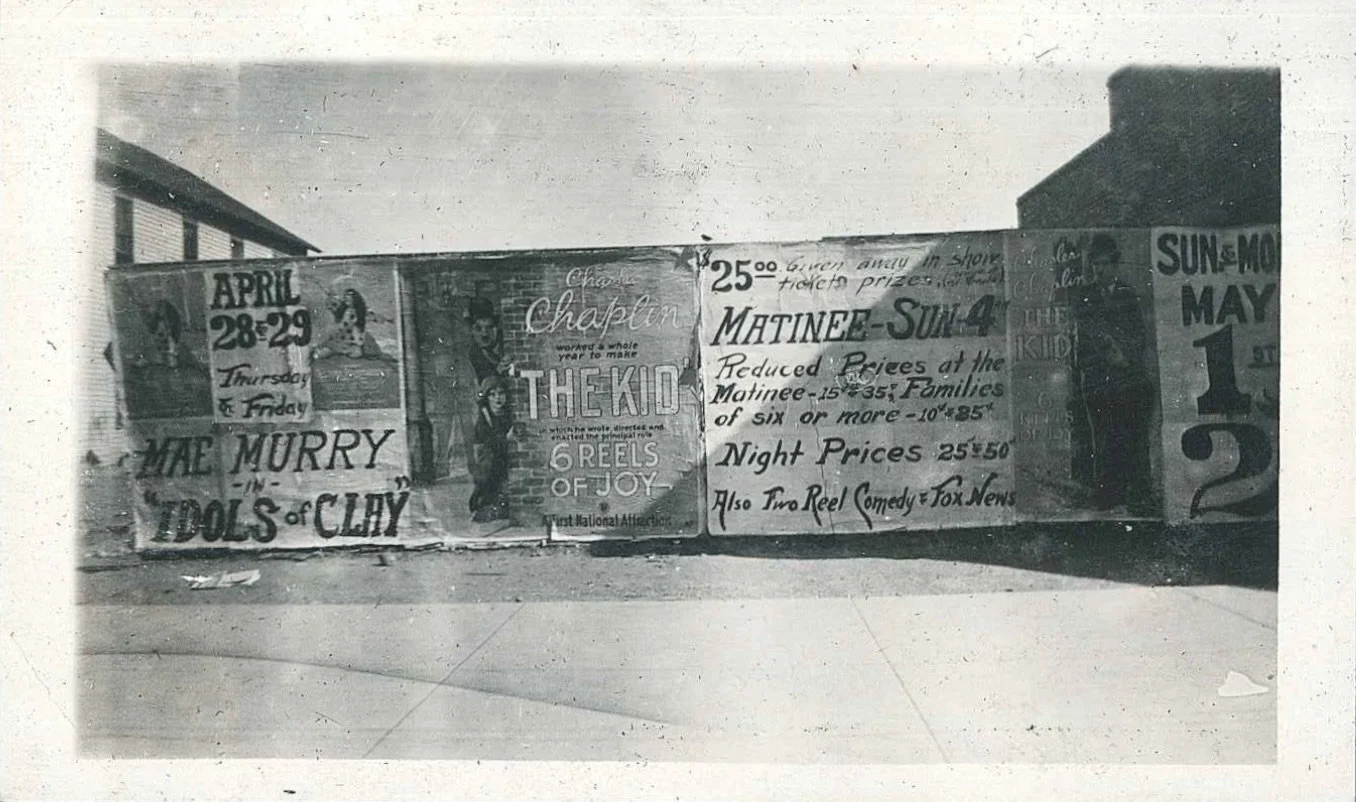 APRIL
28 & 29
Thursday
& Friday
MAE MURRY
-IN-
"IDOLS of CLAY"
Charlie
Chaplin
worked a whole
year to make
"THE KID"
in which he wrote, directed and
enacted the principal role
6 REELS
OF JOY-
A First National Attraction
$2500 Given away in show
tickets prizes
MATINEE-SUN-4
Reduced Prices at the
Matinee-15¢ & 35¢ Families
of six or more-10¢ & 25¢
Night Prices 25¢ & 50¢
Also Two Reel Comedy & Fox News
THE
KID
6
SUN. & MO
MAY
1ST
2